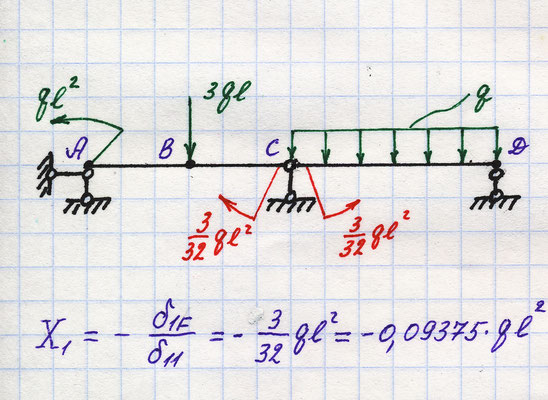 ql²
3ql
q
A
B
C
D
3/32 ql²
3/32 ql²
X₁ = - δ₁F/δ₁₁ = - 3/32 ql² = -0,09375·ql²